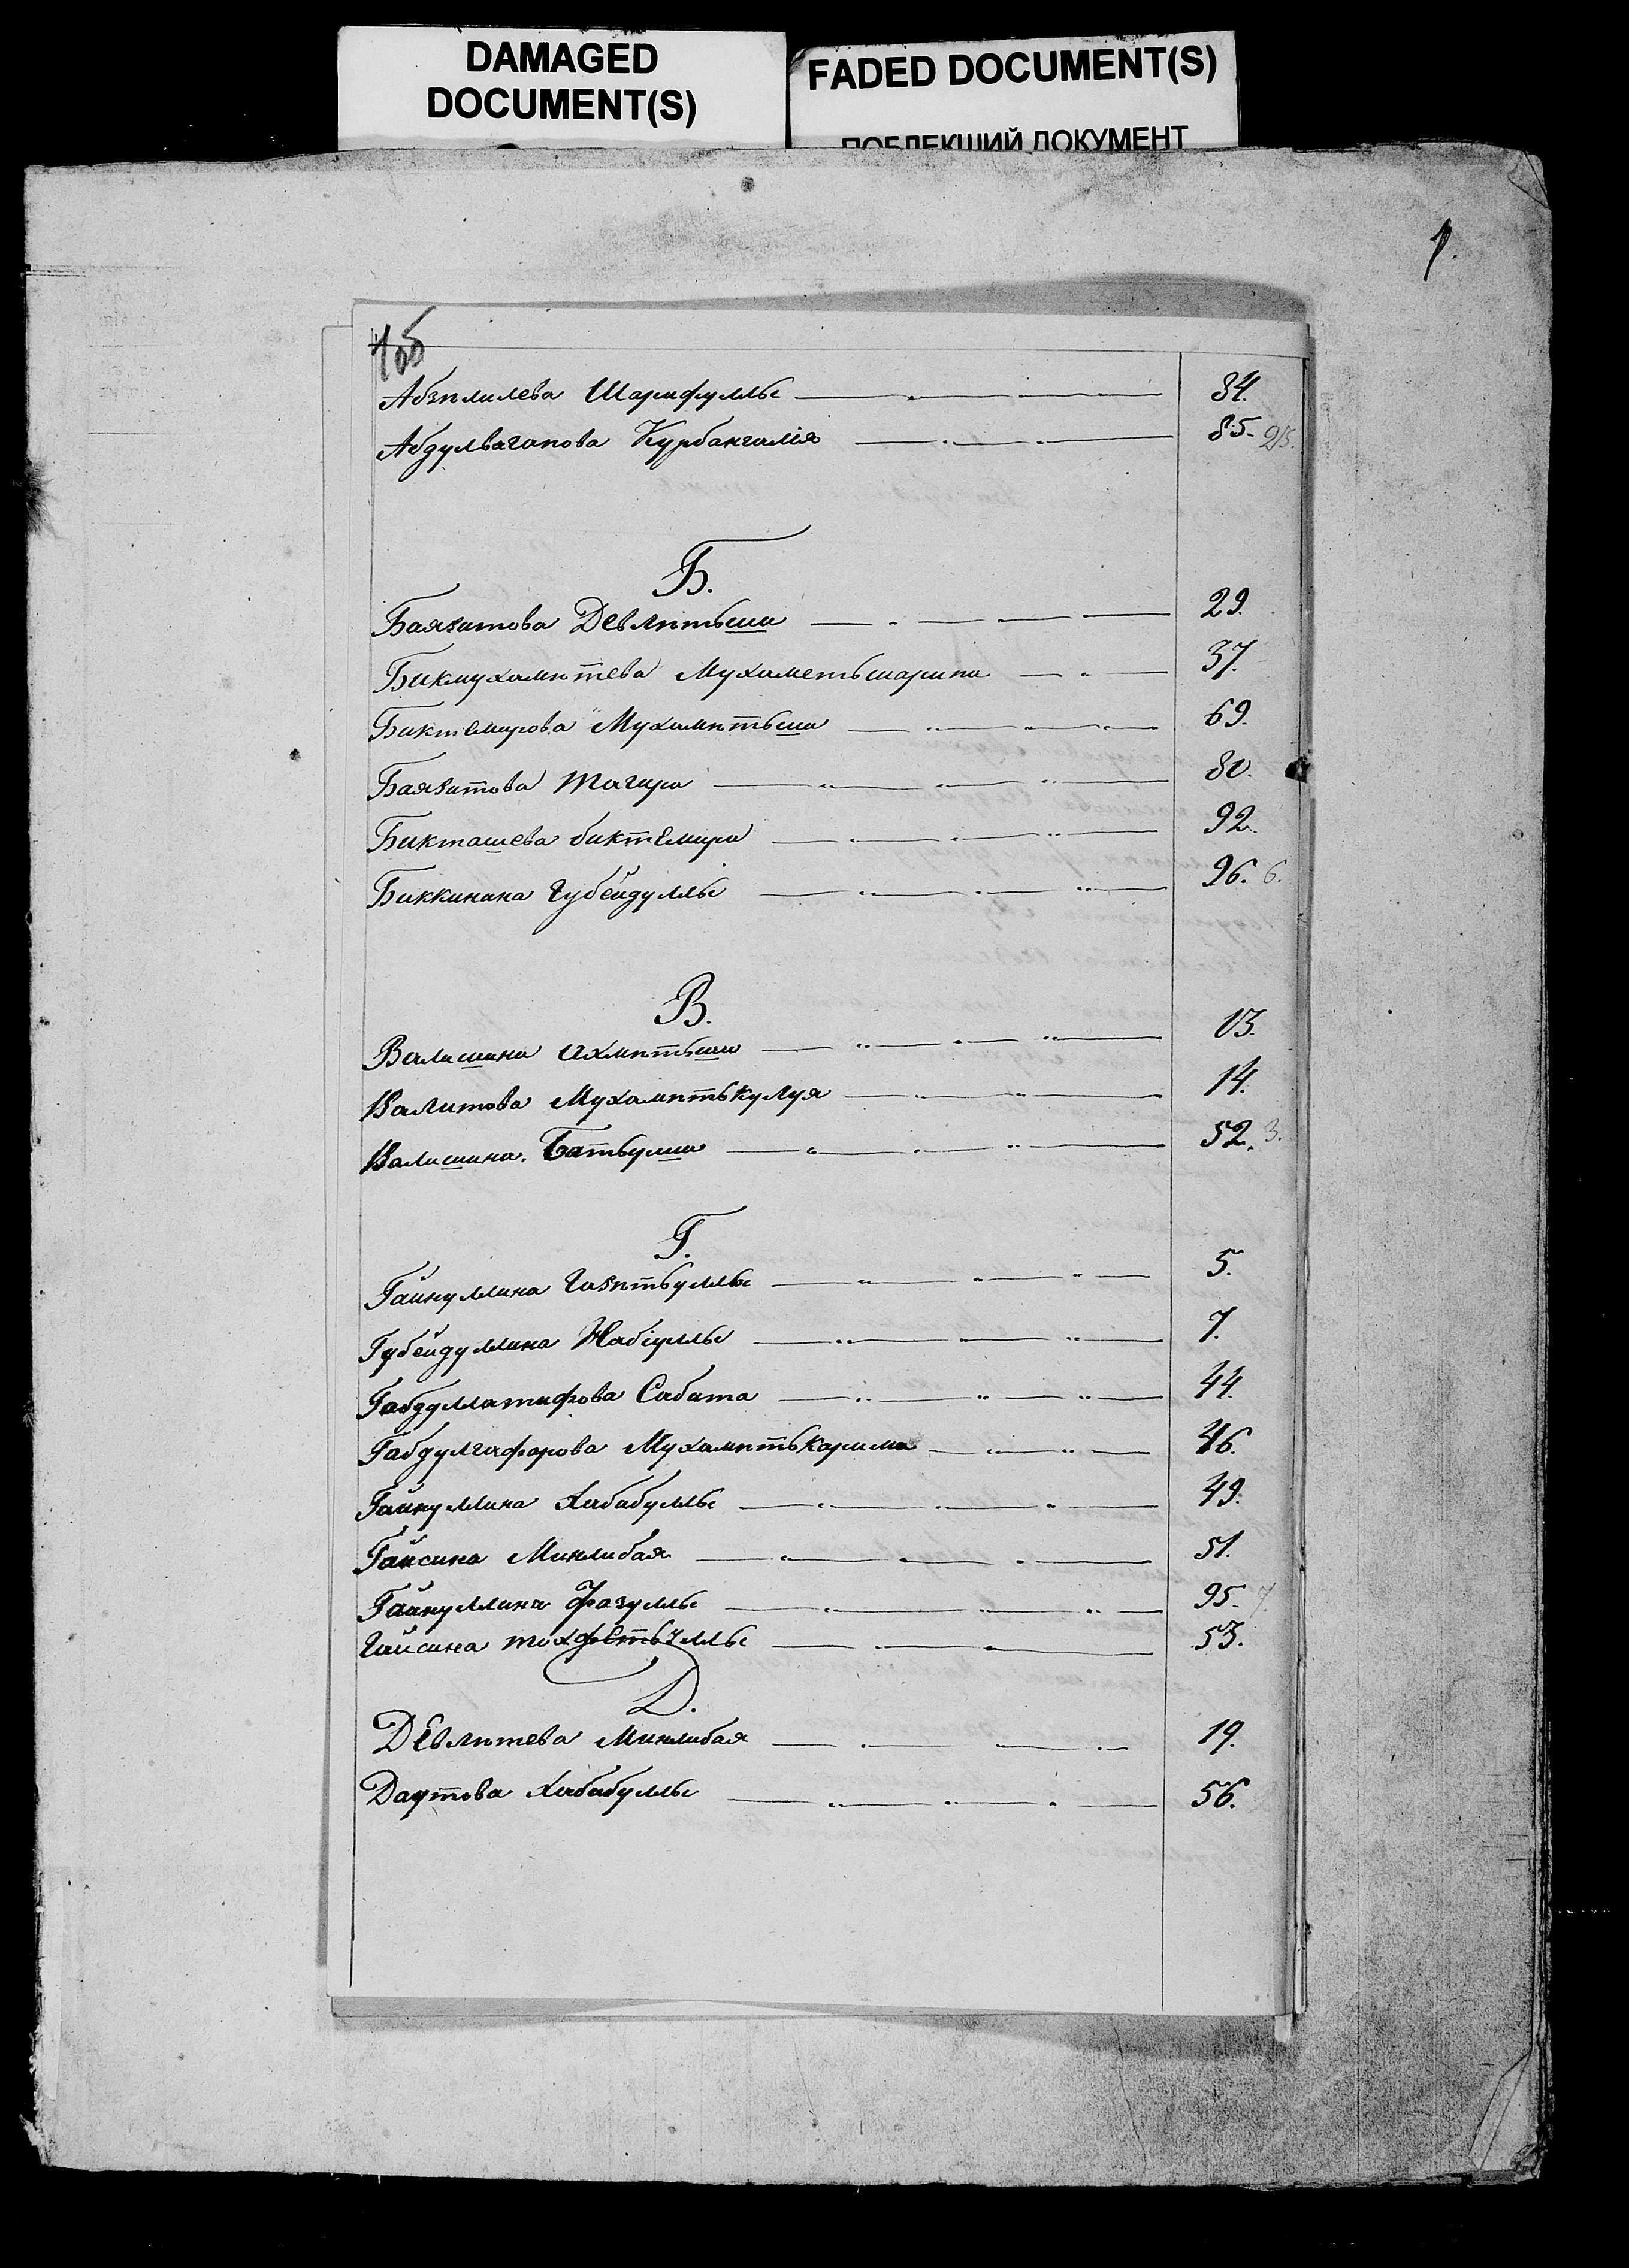 DAMAGED
DOCUMENT(S)
FADED DOCUMENT(S)
ПОБЛЕКШИЙ ДОКУМЕНТ
1об
Абзялилева Шарифуллы 84.
Абдулвагапова Курбангалія 85. 25.
Б.
Баязитова Девлятьши 29.
Бикмухаметева Мухаметьшарипа 37.
Биктемирова Мухаметьши 69.
Баязитова Тагира 80.
Бикташева биктемира 92.
Биккинина Губейдуллы 96. 6.
В.
Валишина Ахметьши 13.
Валитова Мухаметькулуя 14.
Валишина. Батырши 52. 3.
Г.
Гайнуллина Газятьуллы 5.
Губейдуллина Набіуллы 7.
Габдуллатифова Сабита 44.
Габдулгафарова Мухаметькарима 46.
Гайнуллина Хабибуллы 49.
Гайсина Минлибая 51.
Гайнуллина Фазуллы 95. 7.
Гайсина тохфетьуллы 53.
Д.
Девлетева Минлибая 19.
Даутова Хабибуллы 56.